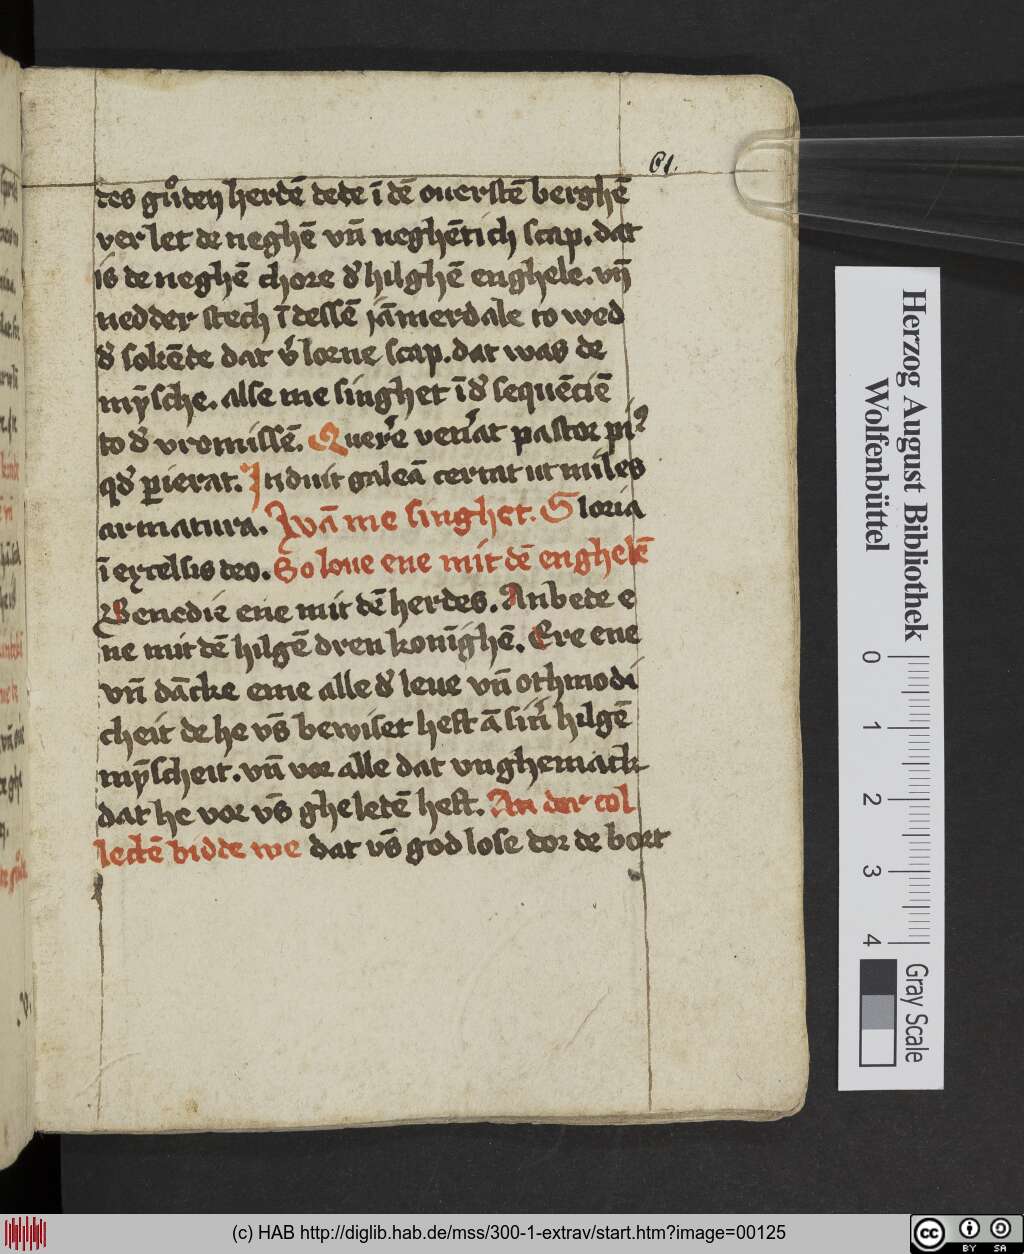 61.
des gůden herdē dede ī dē ouerstē berghē
ver let de neghē vn̄ neghētich scap. dat
is de neghē chore d' hilghē enghele. vn̄
nedder stech ī dessē iāmerdale to wed
d' sokēde dat v'lorne scap. dat was de
mȳsche. alse me singhet ī d' sequēciē
to d' vromissē. Quer'e ven'at pastor pi᷒
qd' ꝑierat. Induit galeā certat ut miles
armatura. Wā me singhet. Gloria
ī excelsis deo. So loue ene mit dē enghelē
Benedie ene mit dē herdes. Anbede e
ne mit dē hilgē dren konīghē. Ere ene
vn̄ dācke eme alle d' leue vn̄ othmodi
cheit de he vs̄ bewiset heft ā sin' hilgē
mȳscheit. vn̄ vor alle dat vnghemack
dat he vor vs̄ gheledē heft. An der col
lectē bidde we dat vs̄ god lose dor de bort
Herzog August Bibliothek
Wolfenbüttel
0 1 2 3 4
Gray Scale
(c) HAB http://diglib.hab.de/mss/300-1-extrav/start.htm?image=00125
cc BY SA